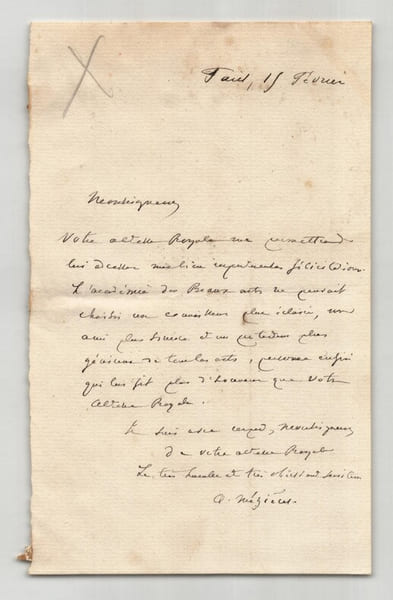 Paris, 15 Février
Monseigneur,
Votre altesse Royale me permettra de
lui adresser mes bien respectueuses félicitations.
L'académie des Beaux arts ne pouvait
choisir un connaisseur plus éclairé, un
ami plus sincère et un protecteur plus
généreux de tous les arts, personne enfin
qui lui fit plus d'honneur que Votre
Altesse Royale.
Je suis avec respect, Monseigneur,
de votre altesse Royale
Le très humble et très obéissant serviteur
A. Mézières.